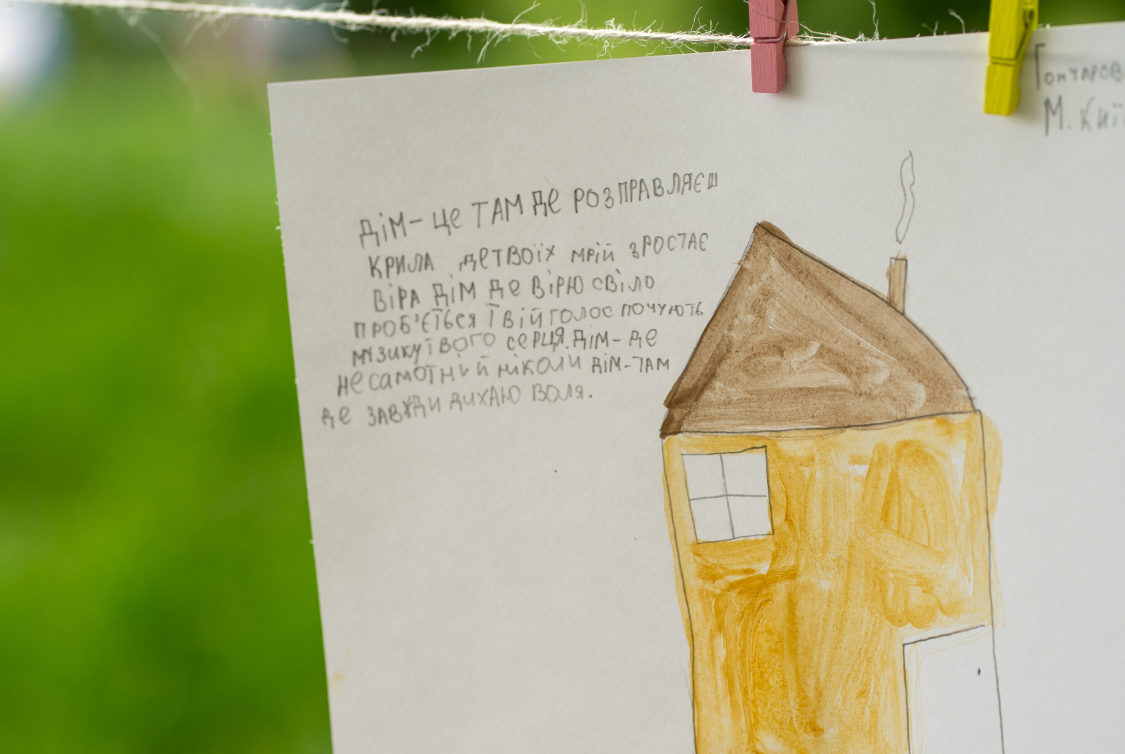 Гончаров
М. Киї
ДІМ – ЦЕ ТАМ ДЕ РОЗПРАВЛЯЄШ
КРИЛА ДЕ ТВОЇХ МРІЙ ЗРОСТАЄ
ВІРА ДІМ ДЕ ВІРЮ СВІЛО
ПРОБ'ЄТЬСЯ ТВІЙ ГОЛОС ПОЧУЮТЬ
МУЗИКУ ТВОГО СЕРЦЯ. ДІМ – ДЕ
НЕ САМОТНІЙ НІКОЛИ ДІМ – ТАМ
ДЕ ЗАВЖДИ ДИХАЮ ВОЛЯ.